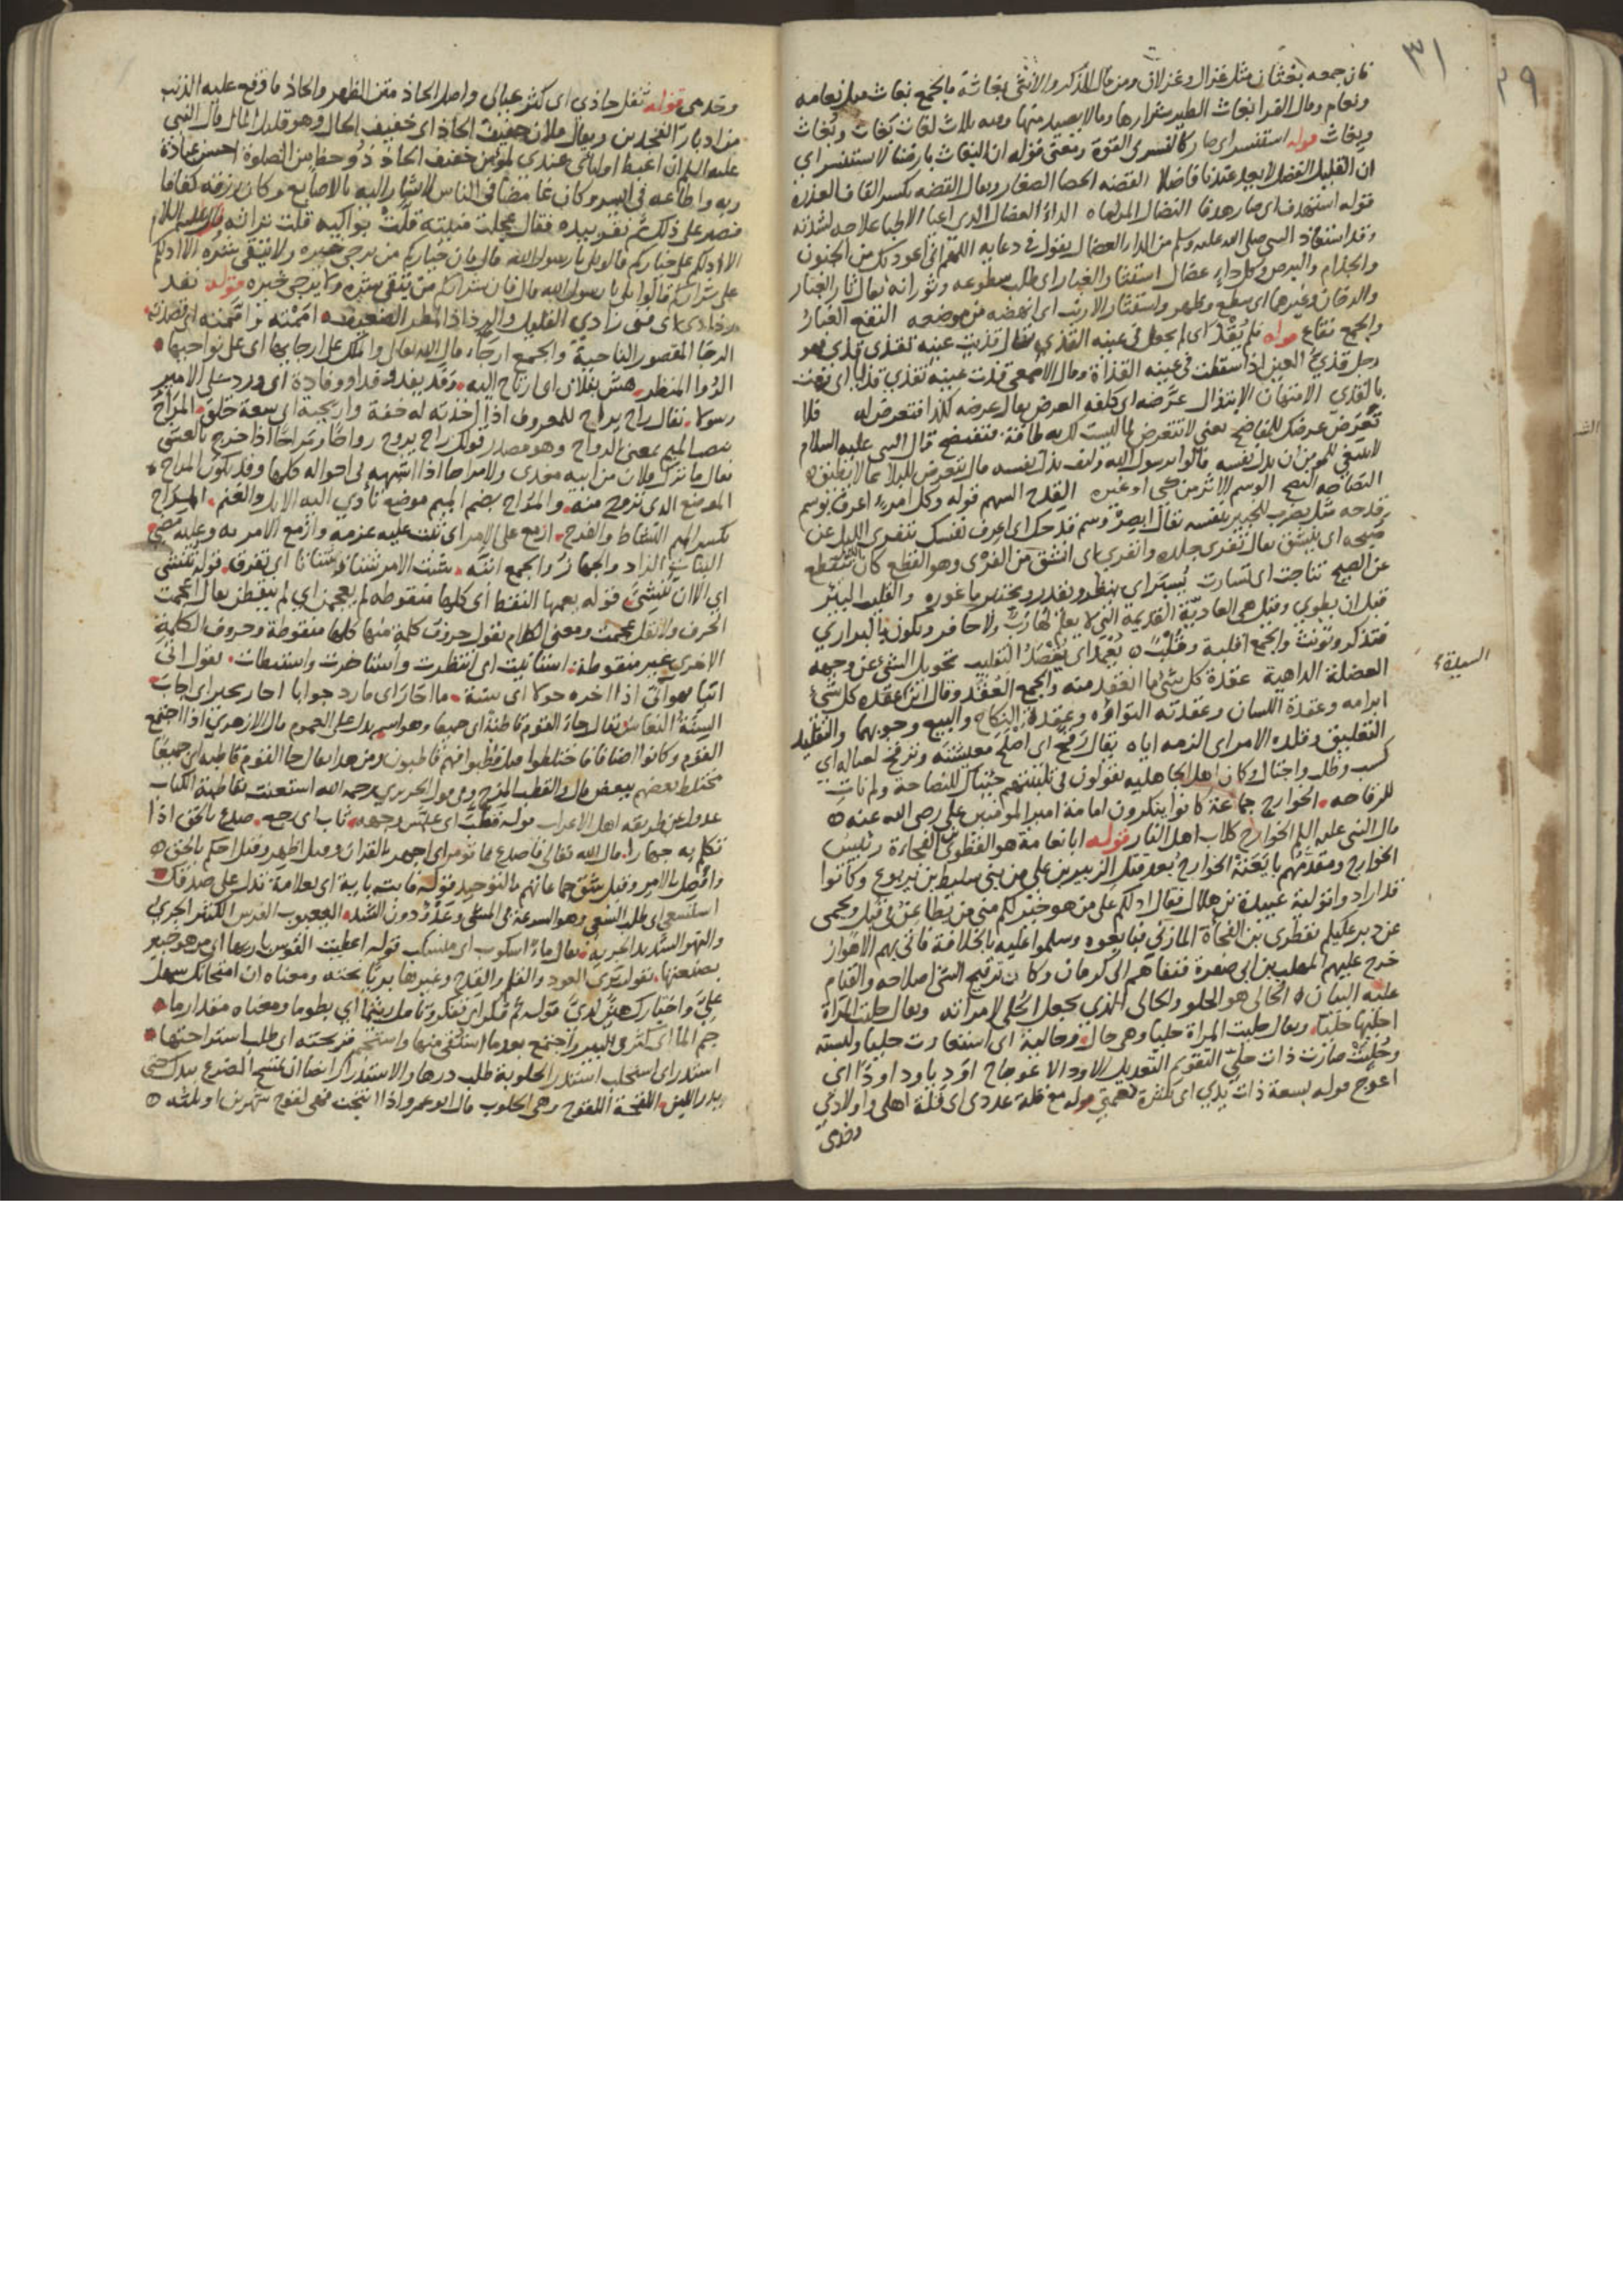 ٣١
فان جمعه بغثان مثل غزال وغزلان ومن قال للذكر والانثى بغاثة فالجمع بغاث مثل نعامه
ونعام وقال الفرا بغاث الطير شرارها وما لا يصيد منها وفيه ثلاث لغات بَغاث وبُغاث
وبِغاث قوله استنسر اي صار كالنسر في القوة ومعنى قوله ان البغاث بارضنا لا يستنسر اي
ان القليل الفضل لا يعد عندنا فاضلا القضه الحصا الصغار ويقال القضه بكسر القاف العذره
قوله استهدف اي صار هدفا النضال المراماه الداء العضال الذي اعيا الاطبا علاجه لشدته
وقد استعاذ النبي صلى الله عليه وسلم من الداء العضال يقول في دعايه اللهم اني اعوذ بك من الجنون
والجذام والبرص وكل داء عضال استثار الغبار اي طلب سطوعه وثورانه يقال ثار الغبار
والدخان وغيرهما اي سطع وظهر واستثار الارنب اي انهضه من موضعه النقع الغبار
والجمع نقاع قوله فلم يُقْذَ اي لم يجعل في عينه القذى يقال قذيت عينه تقذى قذى فهو
رجل قذي العين اذا سقطت في عينه القذاة وقال الاصمعي قذت عينه تقذي قذيا اي رمت
بالقذى الامتهان الابتذال عرّضه اي كلفه العرض يقال عرضه لكذا فتعرض له فلا
تعرض عرضك للمفاضح يعني لا تتعرض لما ليست لك به طاقة فتفتضح قال النبي عليه السلام
لا ينبغي للمومن ان يذل نفسه قالوا يا رسول الله وكيف يذل نفسه قال يتعرض للبلاء بما لا يطيق
النصاحه النصح الوسم الاثر من كي او غيره القدح السهم قوله وكل امرء اعرف بوسم
قدحه مثل يضرب للخبير بنفسه يقال ابصر وسم قدحك اي اعرف نفسك يتفرى الليل عن
صبحه اي ينشق يقال تفرى جلده وانفرى اي انشق من الفرْى وهو القطع كان الليل تقطع
عن الصبح تناجت اي تسارت يُسْبَر اي ينظر ويقدر ويختبر ما غوره والقليب البئر
قبل ان يطوى وقيل هي العاديّة القديمة التي لا يعلم لها رب ولا حافر ويكون بالبراري
فتذكر وتونث والجمع اقلبة وقُلُبٌ يعمد اي يقصد التقليب تحويل الشي عن وجهه
العضلة الداهية عقدة كل شي ما انعقد منه والجمع العُقَد وقال عقده كل شي
السيلة
ابرامه وعقدة اللسان وعقدته التواؤه وعقدة النكاح والبيع وجوبهما والتقليد
التعليق وقلده الامر اي الزمه اياه يقال رقّح اي اصلح معيشته وترقح لعياله اي
كسب وطلب واحتال وكان اهل الجاهلية يقولون في تلبيتهم جئناك للنصاحة ولم نات
للرقاحه الخوارج جماعة كانوا ينكرون امامة امير المومنين علي رضي الله عنه
قال النبي عليه السلم الخوارج كلاب اهل النار قوله ابا نعامة هو القطري بن الفجاءة رئيس
الخوارج ومقدمهم بايعته الخوارج بعد قتل الزبير بن علي من بني سليط بن يربوع وكانوا
قد ارادوا تولية عبيدة بن هلال فقال ادلكم على من هو خير لكم مني من يطاعن في قُبل ويحمي
عن دبر عليكم بقطري بن الفجاة المازني فبايعوه وسلموا عليه بالخلافة فاتى بهم الاهواز
خرج عليهم المهلب بن ابي صفرة فنفاهم الى كرمان وكان ترقيح الشي اصلاحه والقيام
عليه البيان الحالي هو الحلو والحالي الذي يجعل الحلي لامراته ويقال حليت المراة
احليها حليا ويقال حليت المراة حليا وهي حال وحالية اي استفادت حليا ولبسته
وحُليت صارت ذات حلي التقويم التعديل الاود الاعوجاج اوِد ياود اودًا اي
اعوج قوله بسعة ذات يدي اي بكثرة نعمتي قوله مع قلة عددي اي قلة اهلي واولادي
وخدمي
وخدمي قوله ثقل حاذي اي كثر عيالي واصل الحاذ متن الظهر والحاذ ما وقع عليه الذنب
من ادبار الفخذين ويقال فلان خفيف الحاذ اي خفيف الحال وهو قليل المال قال النبي
عليه السلم ان اغبط اوليائي عندي لمؤمن خفيف الحاذ ذو حظ من الصلوة احسن عبادة
ربه واطاعه في السر وكان غامضا في الناس لا يشار اليه بالاصابع وكان رزقه كفافا
فصبر على ذلك ثم نقر بيده فقال عجلت منيته قلّت بواكيه قلت تراثه قال عليه السلام
الا ادلكم على خياركم قالوا بلى يا رسول الله قال فان خياركم من يرجى خيره ولا يتقى شره الا ادلكم
على شراركم قالوا بلى يا رسول الله قال فان شراركم من يتقى شره ولا يرجى خيره قوله نفد
رذاذي اي فني زادي القليل والرذاذ المطر الضعيف اممته تاممته اي قصدته
الرجا المقصور الناحية والجمع ارجاء قال الله تعالى والملك على ارجائها اي على نواحيها
الرُوا المنظر هش بفلان اي ارتاح اليه وفد يفد وفدا ووفادة اي ورد على الامير
رسولا يقال راح يراح للمعروف اذا اخذته له خفة واريحية اي سعة خلق المَرَاح
بنصب الميم بمعنى الرواح وهو مصدر قولك راح يروح رواحًا ومَراحًا اذا خرج بالعشي
يقال ما ترك فلان من ابيه مغدى ولا مراحا اذا اشبهه في احواله كلها وقد يكون المراح
الموضع الذي تروح منه والمُراح بضم الميم موضع تأوي اليه الابل والغنم المِراح
بكسر الميم النشاط والفرح ازمع على الامر اي ثبت عليه عزمه وازمع الامر به وعليه مضى
البتات الزاد والجهاز والجمع ابتّه شت الامر شتا وشتاتا اي تفرق قوله تنشي
اي الان تُنشِئ قوله يعمها النقط اي كلها منقوطه لم يعجمن اي لم ينقطن يقال اعجمت
الحرف ولا تقل عجمت ومعنى الكلام يقول حروف كلمة منها كلها منقوطة وحروف الكلمة
الاخرى غير منقوطة استانيت اي انتظرت واستاخرت واستبطات يقول انى
انيا فهو انيّ اذا اخره حولا اي سنة ما احار اي ما رد جوابا احار يحير اي اجاب
السِنَة النعاس يقال جاء القوم قاطبة اي جميعا وهو اسم يدل على العموم قال الازهري اذا اجتمع
القوم وكانوا اضيافا فاختلطوا قيل قطبوا فهم قاطبون ومن هذا يقال جا القوم قاطبه اي جميعا
مختلط بعضهم ببعض قال والقطب المزج وفي قول الحريري رحمه الله استعنت بقاطبة الكتاب
عدول عن طريقه اهل الاعراب قوله قطب اي عبّس وجهه ثاب اي رجع صدع بالحق اذا
تكلم به جهارا قال الله تعالى فاصدع بما تؤمر اي اجهر بالقران وقيل اظهر وقيل احكم بالحق
وافصل بالامر وقيل شق جماعاتهم بالتوحيد قوله فات باية اي بعلامة تدل على صدقك
استسعى اي طلب السعي وهو السرعة في المشي وعَدْوٌ دون الشد اليعبوب الفرس الكثير الجري
والنهر الشديد الجرية يقال ماء اسكوب اي منسكب قوله اعطيت القوس باريها اي من هو خبير
بصنعتها يقول برى العود والقلم والقدح وغيرها برْيًا نحته ومعناه ان امتحانك سهل
عليّ واختبارك هيّن لديّ قوله ثم فكر اي تفكر وتامل ريثما اي بطوما ومعناه مقدار ما
جم الما اي كثر في البير واجتمع بعد ما استقي منها واستجم قريحته اي طلب استراحتها
استدر اي استحلب استدر الحلوبة طلب درها والاستدرار ايضا ان تمسح الضرع بيدك حتى
يدر اللبن اللقحة اللقوح وهي الحلوب قال ابو عمرو اذا نتجت فهي لقوح شهرين او ثلثه